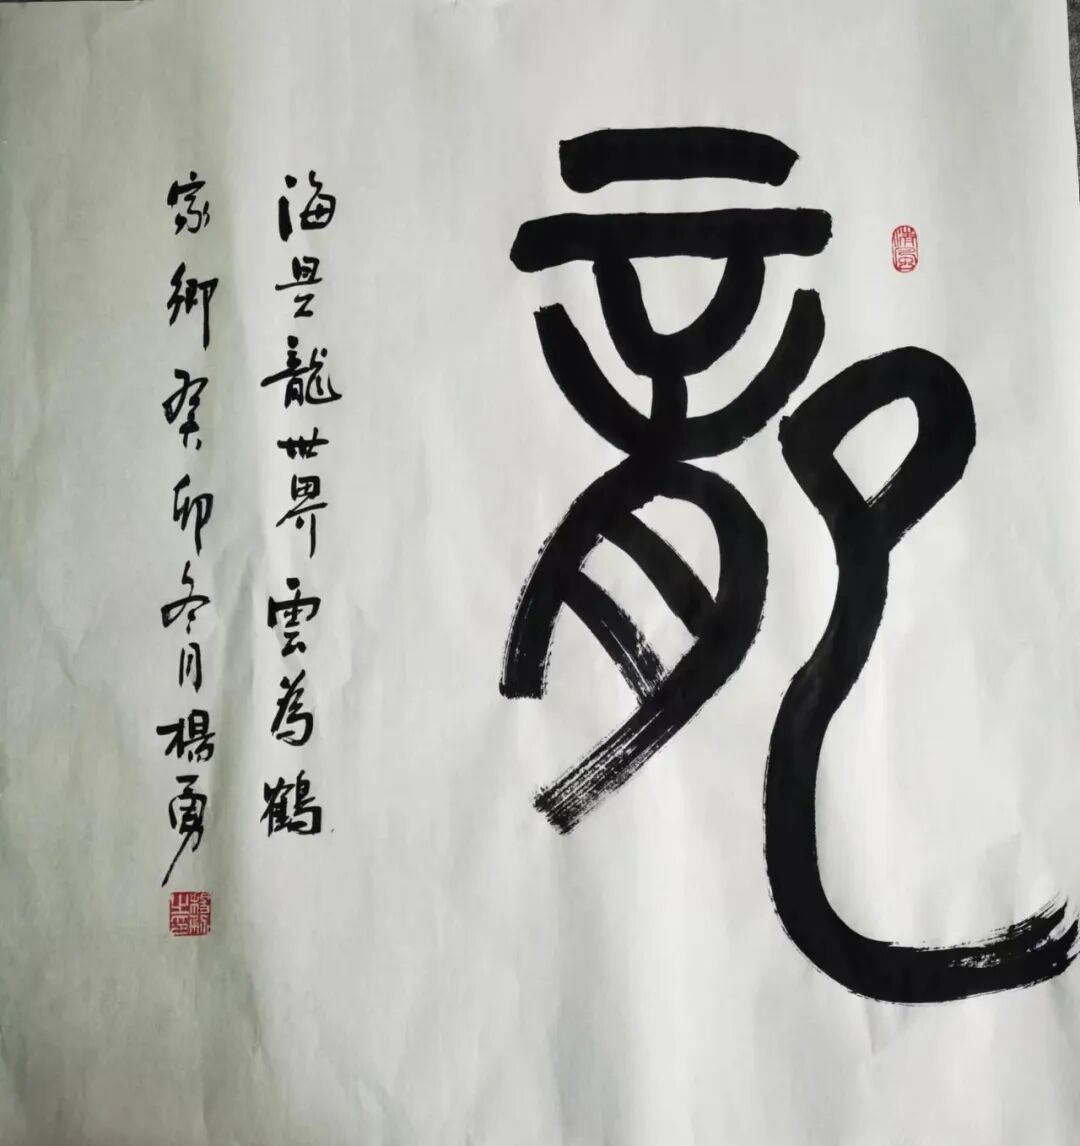 龍
海是龍世界雲為鶴
家鄉癸卯冬月楊勇